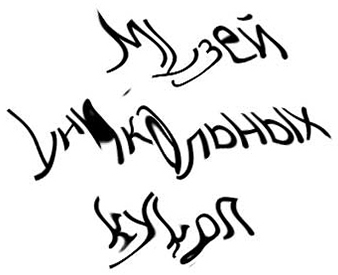 Музей
Уникальных
кукол